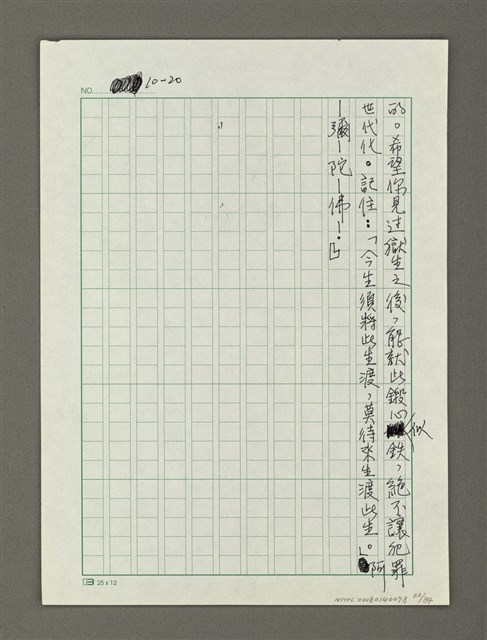 NO. 10-20
的。希望你見过獄生之後，能就此鍛心似鉄，絕不讓犯罪
世代化。記住：「今生須將此生渡，莫待來生渡此生。」阿
—彌—陀—佛—。」
25 x 12